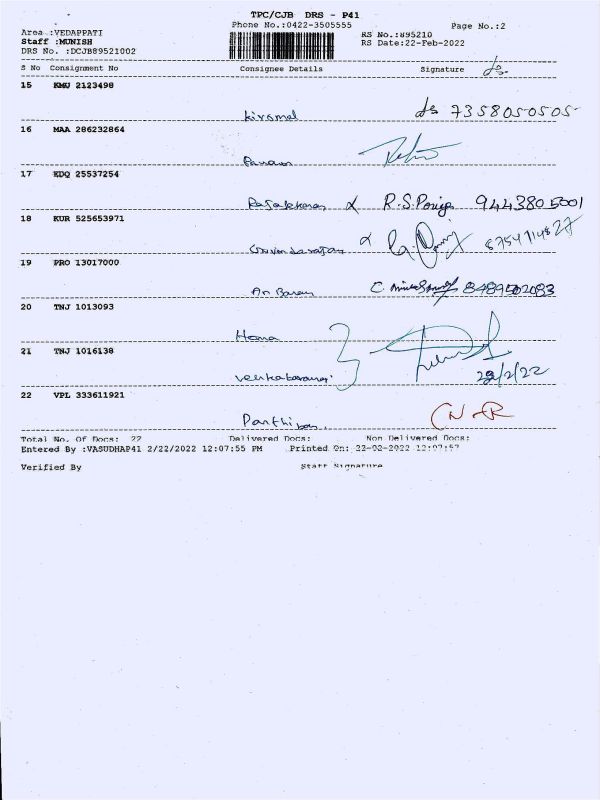 TPC/CJB DRS - P41
Phone No.:0422-3505555 Page No.:2
Area :VEDAPPATI RS No.:895210
Staff :MUNISH RS Date:22-Feb-2022
DRS No. :DCJB89521002
S No Consignment No Consignee Details Signature
15 KMU 2123498
kiromal 7358050505
16 MAA 286232864
17 KDQ 25537254
Rajalekaran R.S.Poriya 9443805001
18 KUR 525653971
Govindarajan 8754714827
19 PRO 13017000
8489502083
20 TNJ 1013093
Hema
21 TNJ 1016138
22/2/22
22 VPL 333611921
Parthiban.
Total No. Of Docs: 22 Delivered Docs: Non Delivered Docs:
Entered By :VASUDHAP41 2/22/2022 12:07:55 PM Printed On: 22-02-2022 12:07:57
Verified By Staff Signature